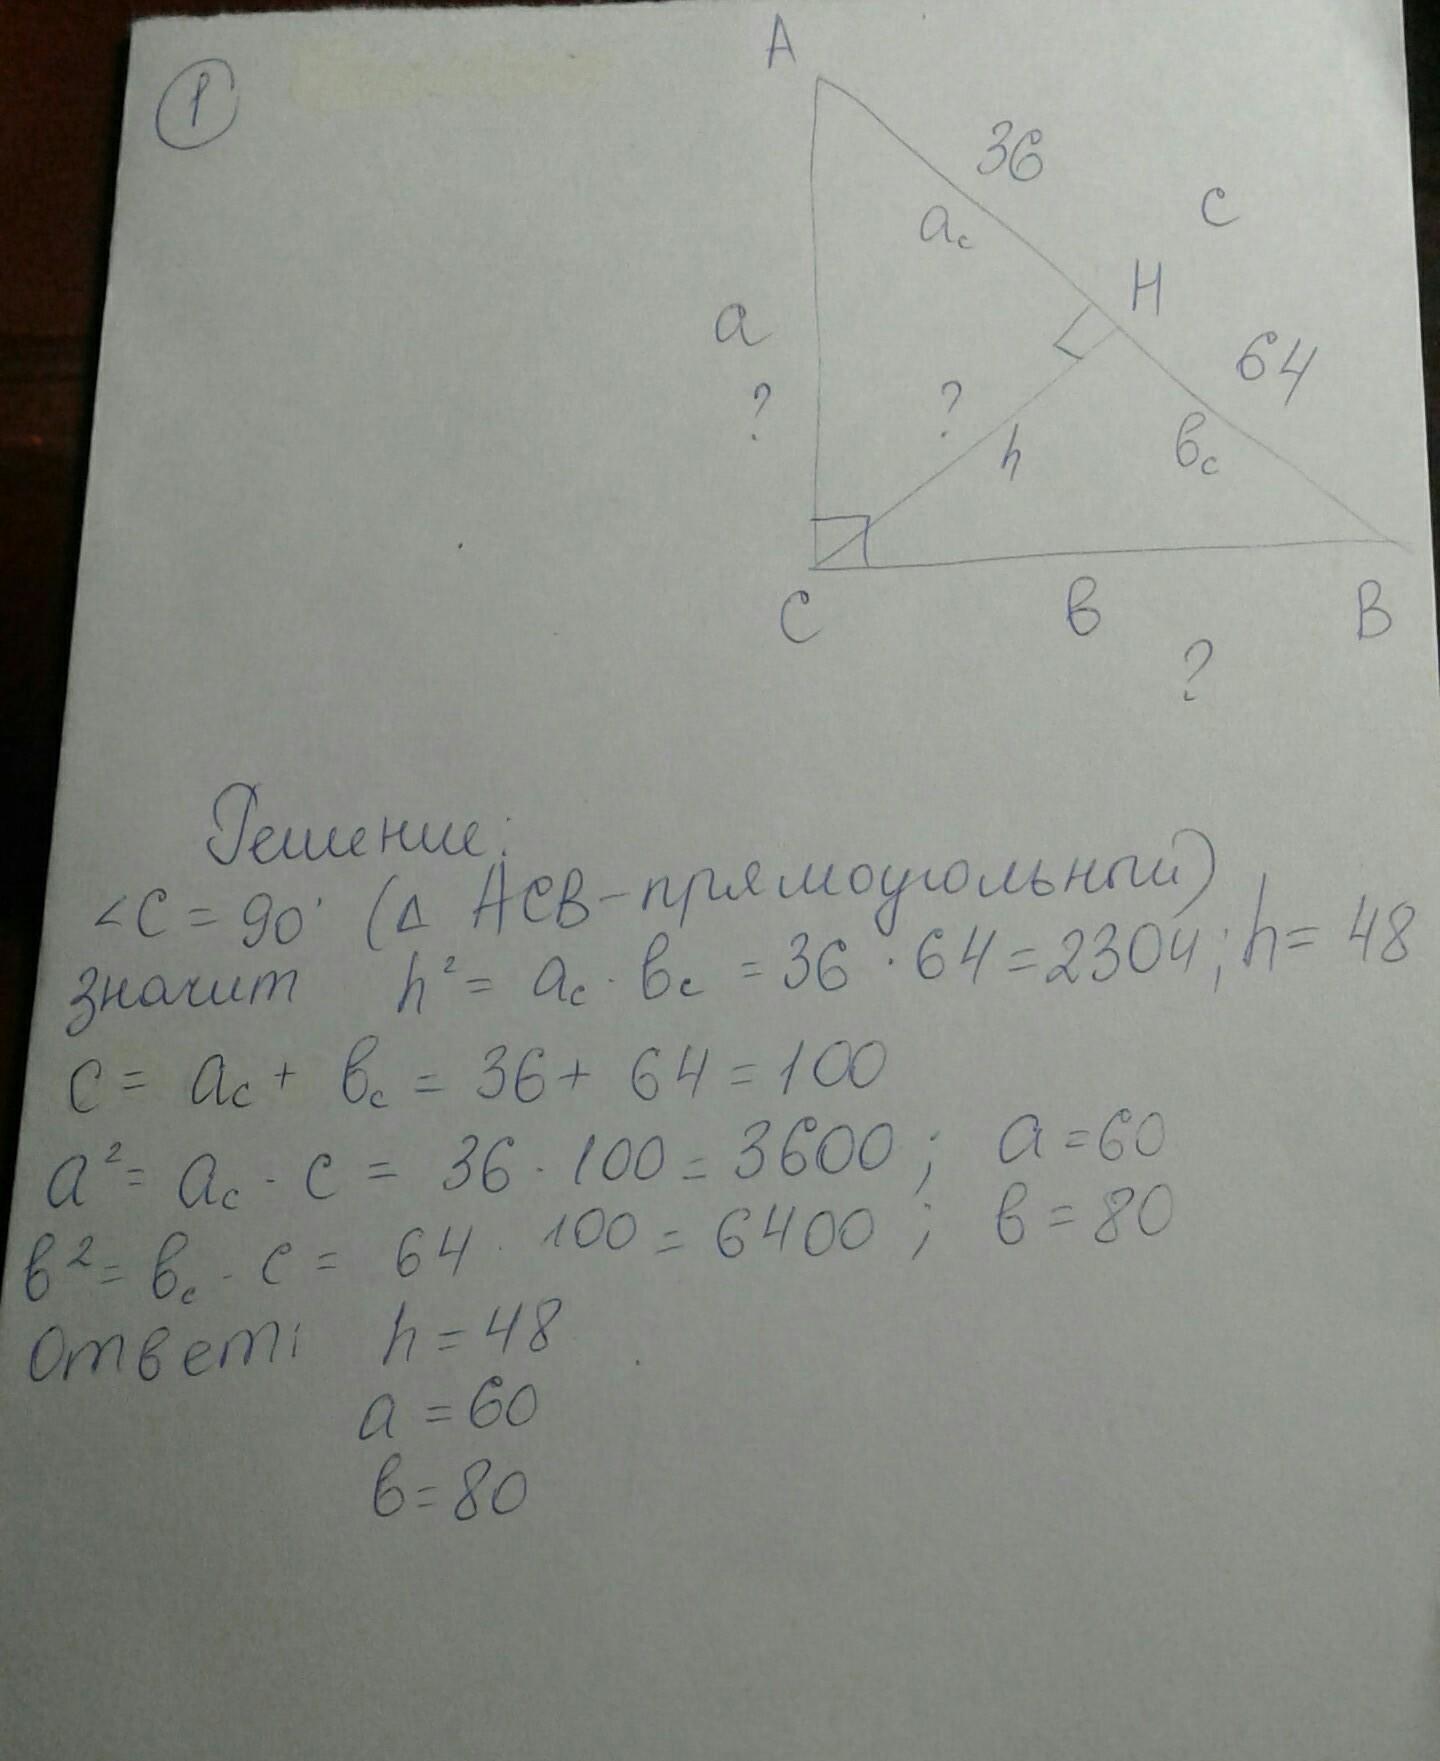 1
A
36
aс
c
H
a
64
?
?
h
вс
C
в
B
?
Решение:
∠C = 90° (Δ ACB - прямоугольный)
значит h² = aс · вс = 36 · 64 = 2304; h = 48
c = aс + вс = 36 + 64 = 100
a² = aс · c = 36 · 100 = 3600; a = 60
в² = вс · c = 64 · 100 = 6400; в = 80
Ответ: h = 48
a = 60
в = 80